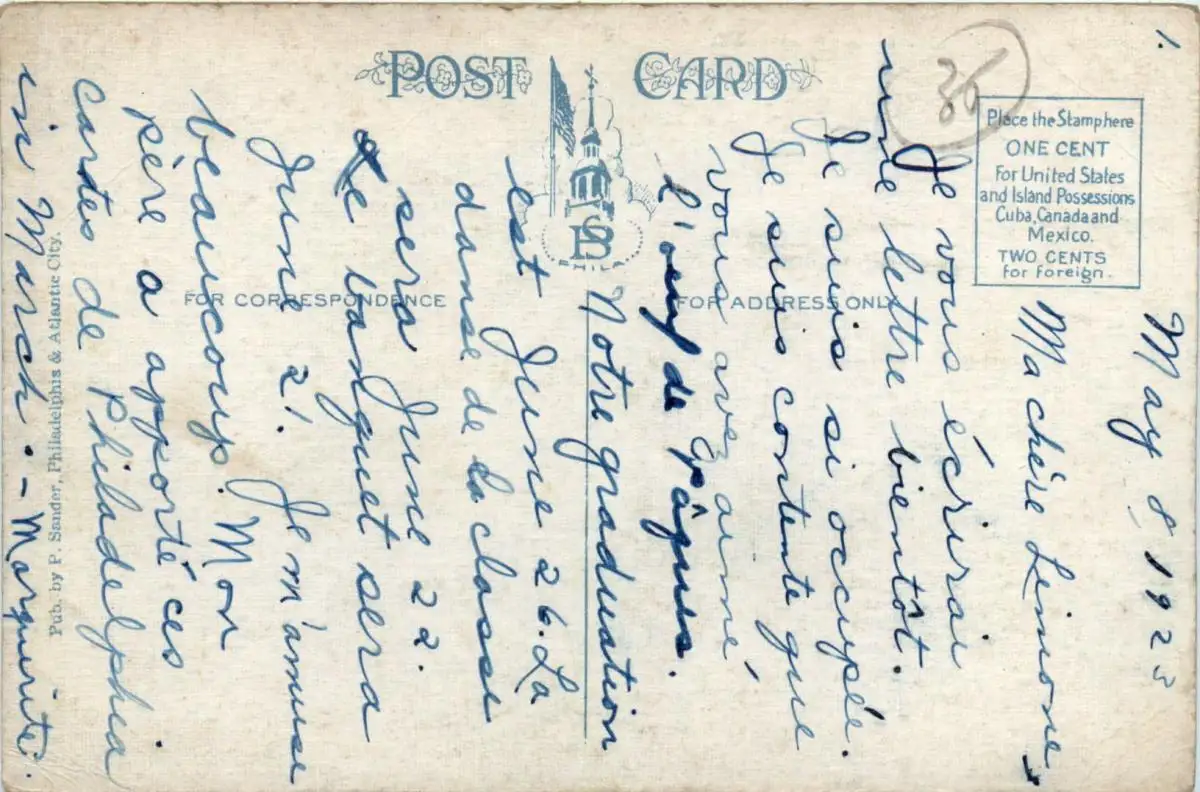 POST CARD
Place the Stamp here
ONE CENT
For United States
and Island Possessions
Cuba, Canada and
Mexico.
TWO CENTS
for foreign.
PHILA
FOR CORRESPONDENCE
FOR ADDRESS ONLY
Pub. by P. Sander, Philadelphis & Atlantic City.
1.
May 8 1923
Ma chère Limone,
Je vous écrirai
une lettre bientôt.
Je suis si occupée.
Je suis contente que
vous avez aimé
l'oeuf de Pâques.
Notre graduation
est June 26. La
danse de la classe
sera June 22.
Le banquet sera
June 21. Je m'amuse
beaucoup. Mon
père a apporté ces
cartes de Philadelphia
in March. - Marguerite.